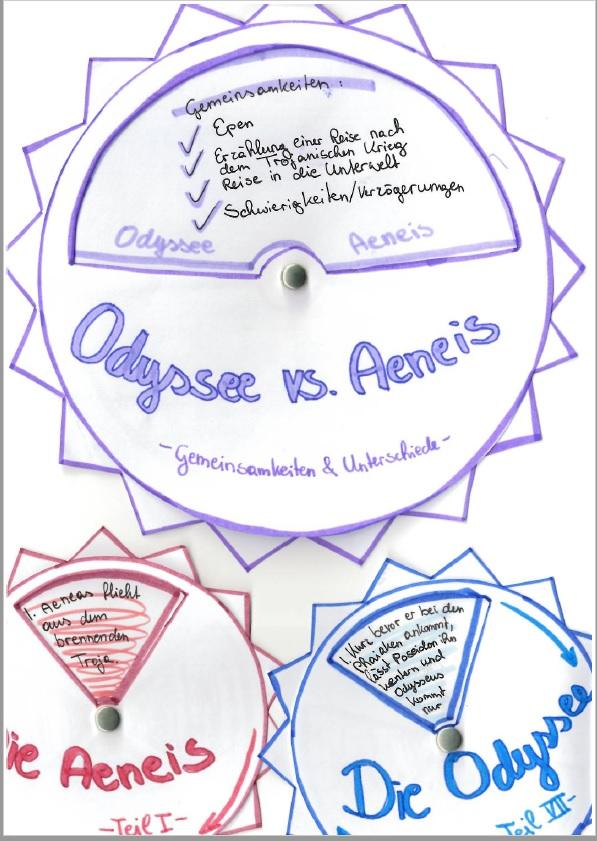 Gemeinsamkeiten:
Epen
Erzählung einer Reise nach
dem Trojanischen Krieg
Reise in die Unterwelt
Schwierigkeiten/Verzögerungen
Odyssee Aeneis
Odyssee vs. Aeneis
-Gemeinsamkeiten & Unterschiede-
1. Aeneas flieht
aus dem
brennenden
Troja.
ie Aeneis
-Teil I-
1. Kurz bevor er bei den
Phaiaken ankommt,
lässt Poseidon ihn
kentern und
Odysseus
kommt
nur
Die Odyssee
Teil VII-